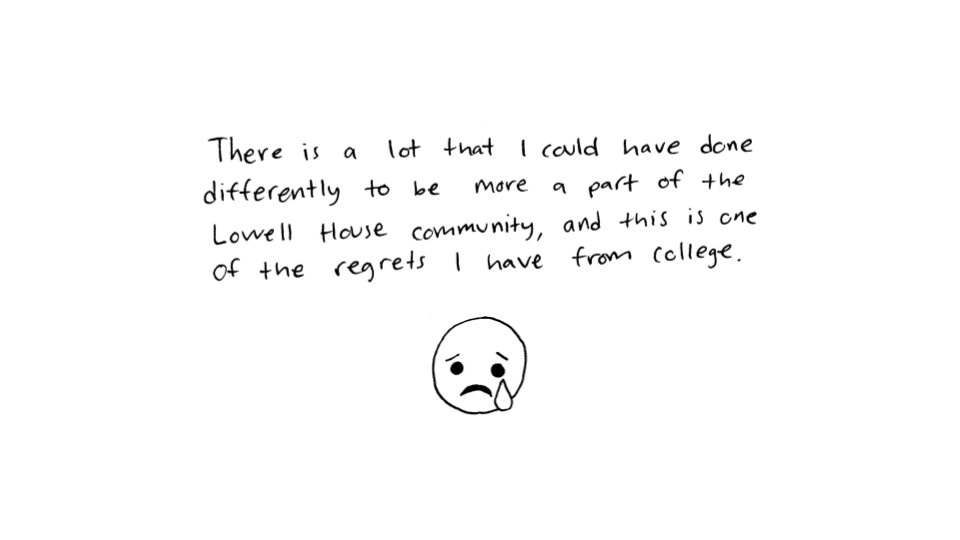 There is a lot that I could have done
differently to be more a part of the
Lowell House community, and this is one
of the regrets I have from college.